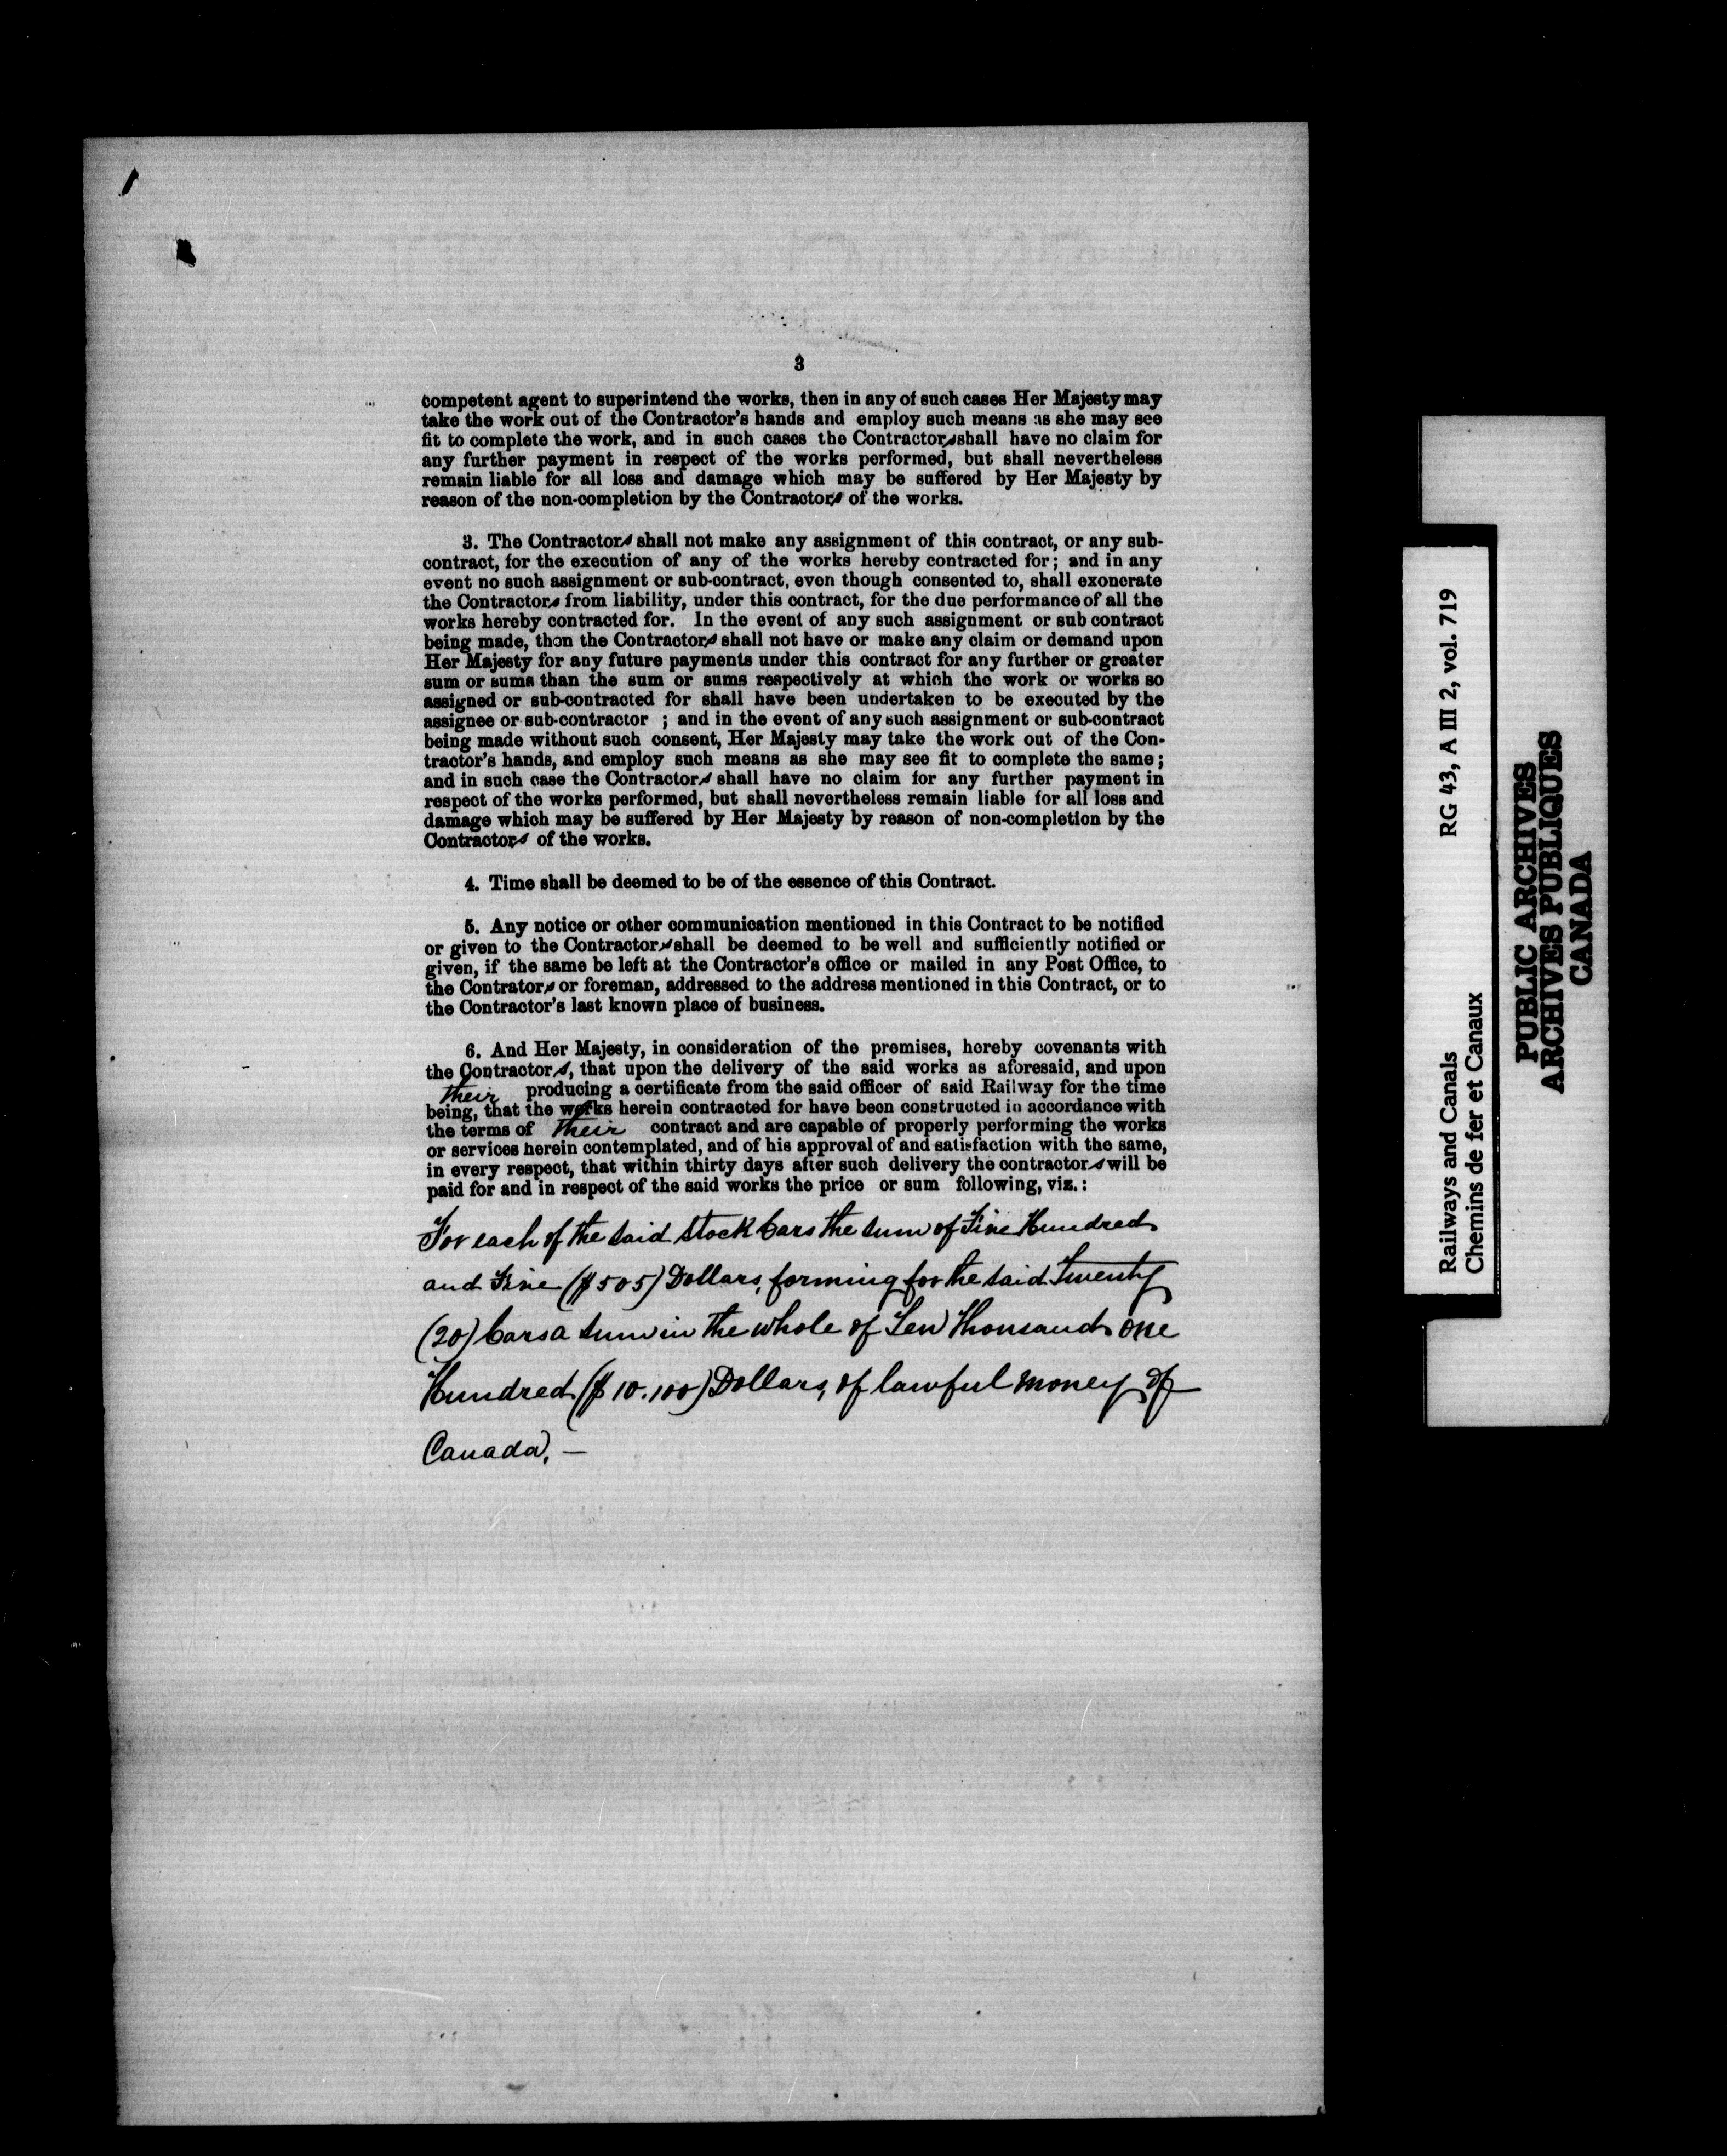 3
competent agent to superintend the works, then in any of such cases Her Majesty may
take the work out of the Contractor's hands and employ such means as she may see
fit to complete the work, and in such cases the Contractors shall have no claim for
any further payment in respect of the works performed, but shall nevertheless
remain liable for all loss and damage which may be suffered by Her Majesty by
reason of the non-completion by the Contractors of the works.
3. The Contractors shall not make any assignment of this contract, or any sub-
contract, for the execution of any of the works hereby contracted for; and in any
event no such assignment or sub-contract, even though consented to, shall exonerate
the Contractors from liability, under this contract, for the due performance of all the
works hereby contracted for. In the event of any such assignment or sub contract
being made, then the Contractors shall not have or make any claim or demand upon
Her Majesty for any future payments under this contract for any further or greater
sum or sums than the sum or sums respectively at which the work or works so
assigned or sub-contracted for shall have been undertaken to be executed by the
assignee or sub-contractor ; and in the event of any such assignment or sub-contract
being made without such consent, Her Majesty may take the work out of the Con-
tractor's hands, and employ such means as she may see fit to complete the same;
and in such case the Contractors shall have no claim for any further payment in
respect of the works performed, but shall nevertheless remain liable for all loss and
damage which may be suffered by Her Majesty by reason of non-completion by the
Contractors of the works.
4. Time shall be deemed to be of the essence of this Contract.
5. Any notice or other communication mentioned in this Contract to be notified
or given to the Contractors shall be deemed to be well and sufficiently notified or
given, if the same be left at the Contractor's office or mailed in any Post Office, to
the Contrators or foreman, addressed to the address mentioned in this Contract, or to
the Contractor's last known place of business.
6. And Her Majesty, in consideration of the premises, hereby covenants with
the Contractors, that upon the delivery of the said works as aforesaid, and upon
their producing a certificate from the said officer of said Railway for the time
being, that the works herein contracted for have been constructed in accordance with
the terms of their contract and are capable of properly performing the works
or services herein contemplated, and of his approval of and satisfaction with the same,
in every respect, that within thirty days after such delivery the contractors will be
paid for and in respect of the said works the price or sum following, viz.:
For each of the said Stock Cars the sum of Five Hundred
and Five ($505) Dollars, forming for the said Twenty
(20) Cars a sum in the whole of Ten Thousand one
Hundred ($10.100) Dollars, of lawful money of
Canada, —
Railways and Canals RG 43, A III 2, vol. 719
Chemins de fer et Canaux
PUBLIC ARCHIVES
ARCHIVES PUBLIQUES
CANADA